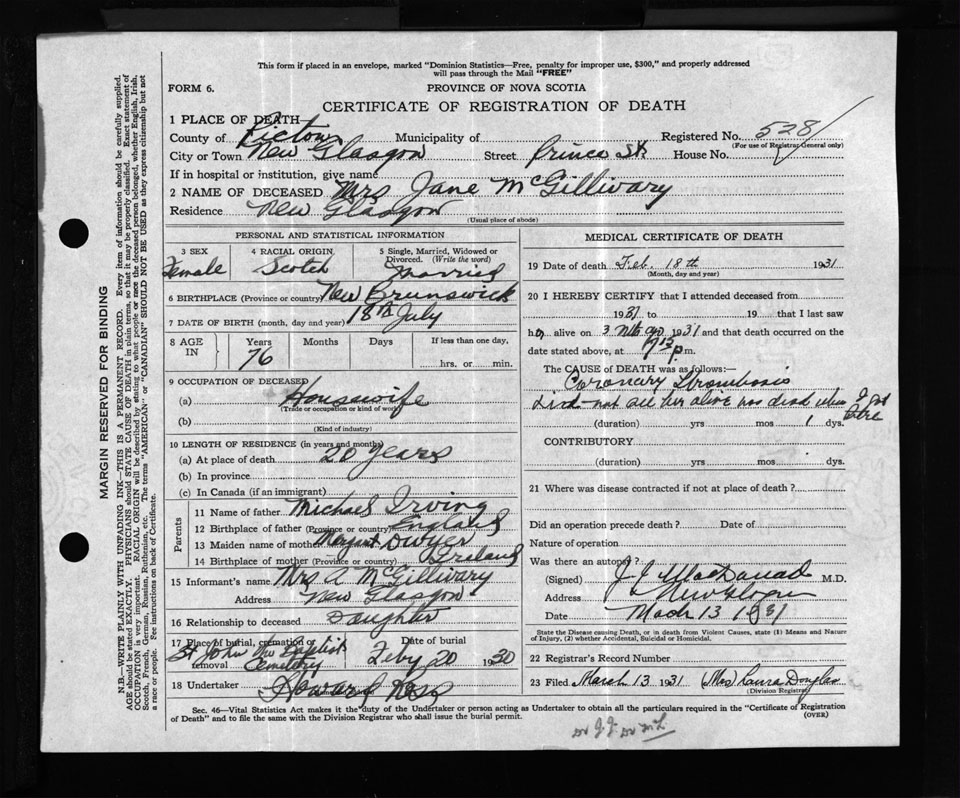 This form if placed in an envelope, marked "Dominion Statistics—Free, penalty for improper use, $300," and properly addressed
will pass through the Mail "FREE"
FORM 6. PROVINCE OF NOVA SCOTIA
CERTIFICATE OF REGISTRATION OF DEATH
1 PLACE OF DEATH—
County of Pictou Municipality of Registered No. 528
(For use of Registrar-General only)
City or Town New Glasgow Street Prince St. House No.
If in hospital or institution, give name
2 NAME OF DECEASED Mrs Jane McGillivary
Residence New Glasgow
(Usual place of abode)
PERSONAL AND STATISTICAL INFORMATION
3 SEX 4 RACIAL ORIGIN 5 Single, Married, Widowed or
Divorced. (Write the word)
Female Scotch Married
6 BIRTHPLACE (Province or country) New Brunswick
7 DATE OF BIRTH (month, day and year) 18th July
8 AGE IN Years Months Days If less than one day,
76 hrs. or min.
9 OCCUPATION OF DECEASED
(a) Housewife
(Trade or occupation or kind of work)
(b)
(Kind of industry)
10 LENGTH OF RESIDENCE (in years and months)
(a) At place of death 20 years
(b) In province
(c) In Canada (if an immigrant)
Parents
11 Name of father Michael Irving
12 Birthplace of father (Province or country) England
13 Maiden name of mother Margaret Dwyer
14 Birthplace of mother (Province or country) Ireland
15 Informant's name Mrs A McGillivary
Address New Glasgow
16 Relationship to deceased Daughter
17 Place of burial, cremation or removal Date of burial
St John Nw Baptist
Cemetery Feby 20 1930
18 Undertaker Howard Ross
MEDICAL CERTIFICATE OF DEATH
19 Date of death Feb. 18th 1931
(Month, day and year)
20 I HEREBY CERTIFY that I attended deceased from
1931 to 19 that I last saw
her alive on 3 Mts ago 1931 and that death occurred on the
date stated above, at p.m.
The CAUSE OF DEATH was as follows:—
Coronary Thrombosis
Did not see her alive was dead when I got there
(duration) yrs mos 1 dys.
CONTRIBUTORY
(duration) yrs mos dys.
21 Where was disease contracted if not at place of death?
Did an operation precede death? Date of
Nature of operation
Was there an autopsy?
(Signed) J J MacDonald M.D.
Address New Glasgow
Date March 13 1931
State the Disease causing Death, or in death from Violent Causes, state (1) Means and Nature
of Injury, (2) whether Accidental, Suicidal or Homicidal.
22 Registrar's Record Number
23 Filed March 13 1931 (Mrs) Laura Douglas
(Division Registrar)
Sec. 46—Vital Statistics Act makes it the duty of the Undertaker or person acting as Undertaker to obtain all the particulars required in the "Certificate of Registration
of Death" and to file the same with the Division Registrar who shall issue the burial permit. (OVER)
MARGIN RESERVED FOR BINDING
N.B.—WRITE PLAINLY WITH UNFADING INK—THIS IS A PERMANENT RECORD. Every item of information should be carefully supplied.
AGE should be stated EXACTLY. PHYSICIANS should STATE CAUSE OF DEATH in plain terms, so that it may be properly classified. Exact statement of
OCCUPATION is very important. RACIAL ORIGIN will be described by stating to what people or race the deceased person belonged, whether English, Irish,
Scotch, French, German, Russian, Ruthenian, etc. The terms "AMERICAN" or "CANADIAN" SHOULD NOT BE USED as they express citizenship but not
a race or people. See instructions on back of Certificate.